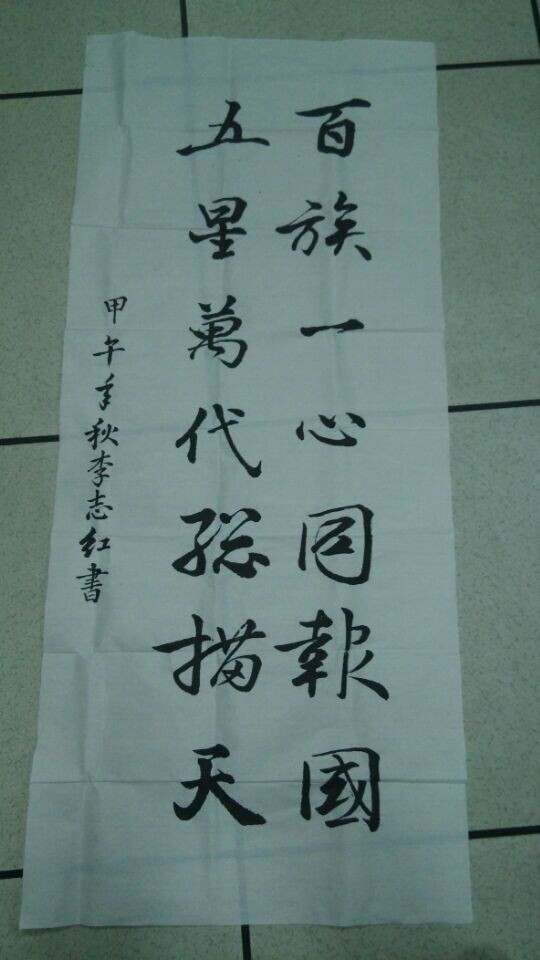 百族一心同報國
五星萬代總描天
甲午年秋李志红書